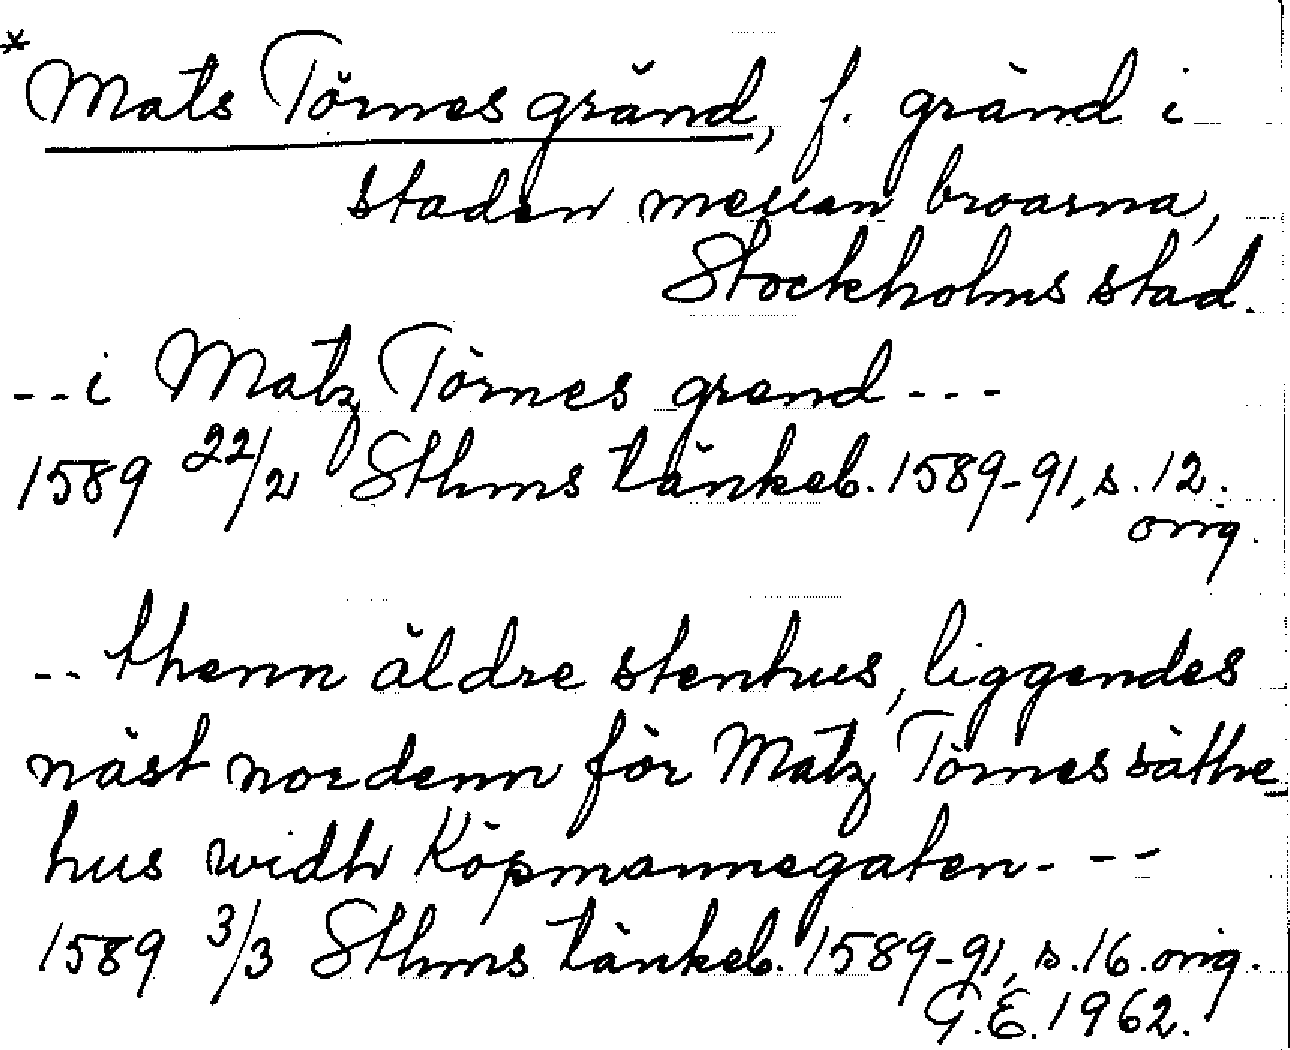 * Mats Törnes gränd, f. gränd i
staden mellan broarna,
Stockholms stad.
--i Matz Törnes grend---
1589 22/2 Sthms tänkeb. 1589-91, s. 12.
orig.
-- thenn äldre stenhus, liggendes
näst nordenn för Matz Törnes säthe_
hus widh Köpmannegaten---
1589 3/3 Sthms tänkeb. 1589-91, s. 16. orig.
G.E. 1962.